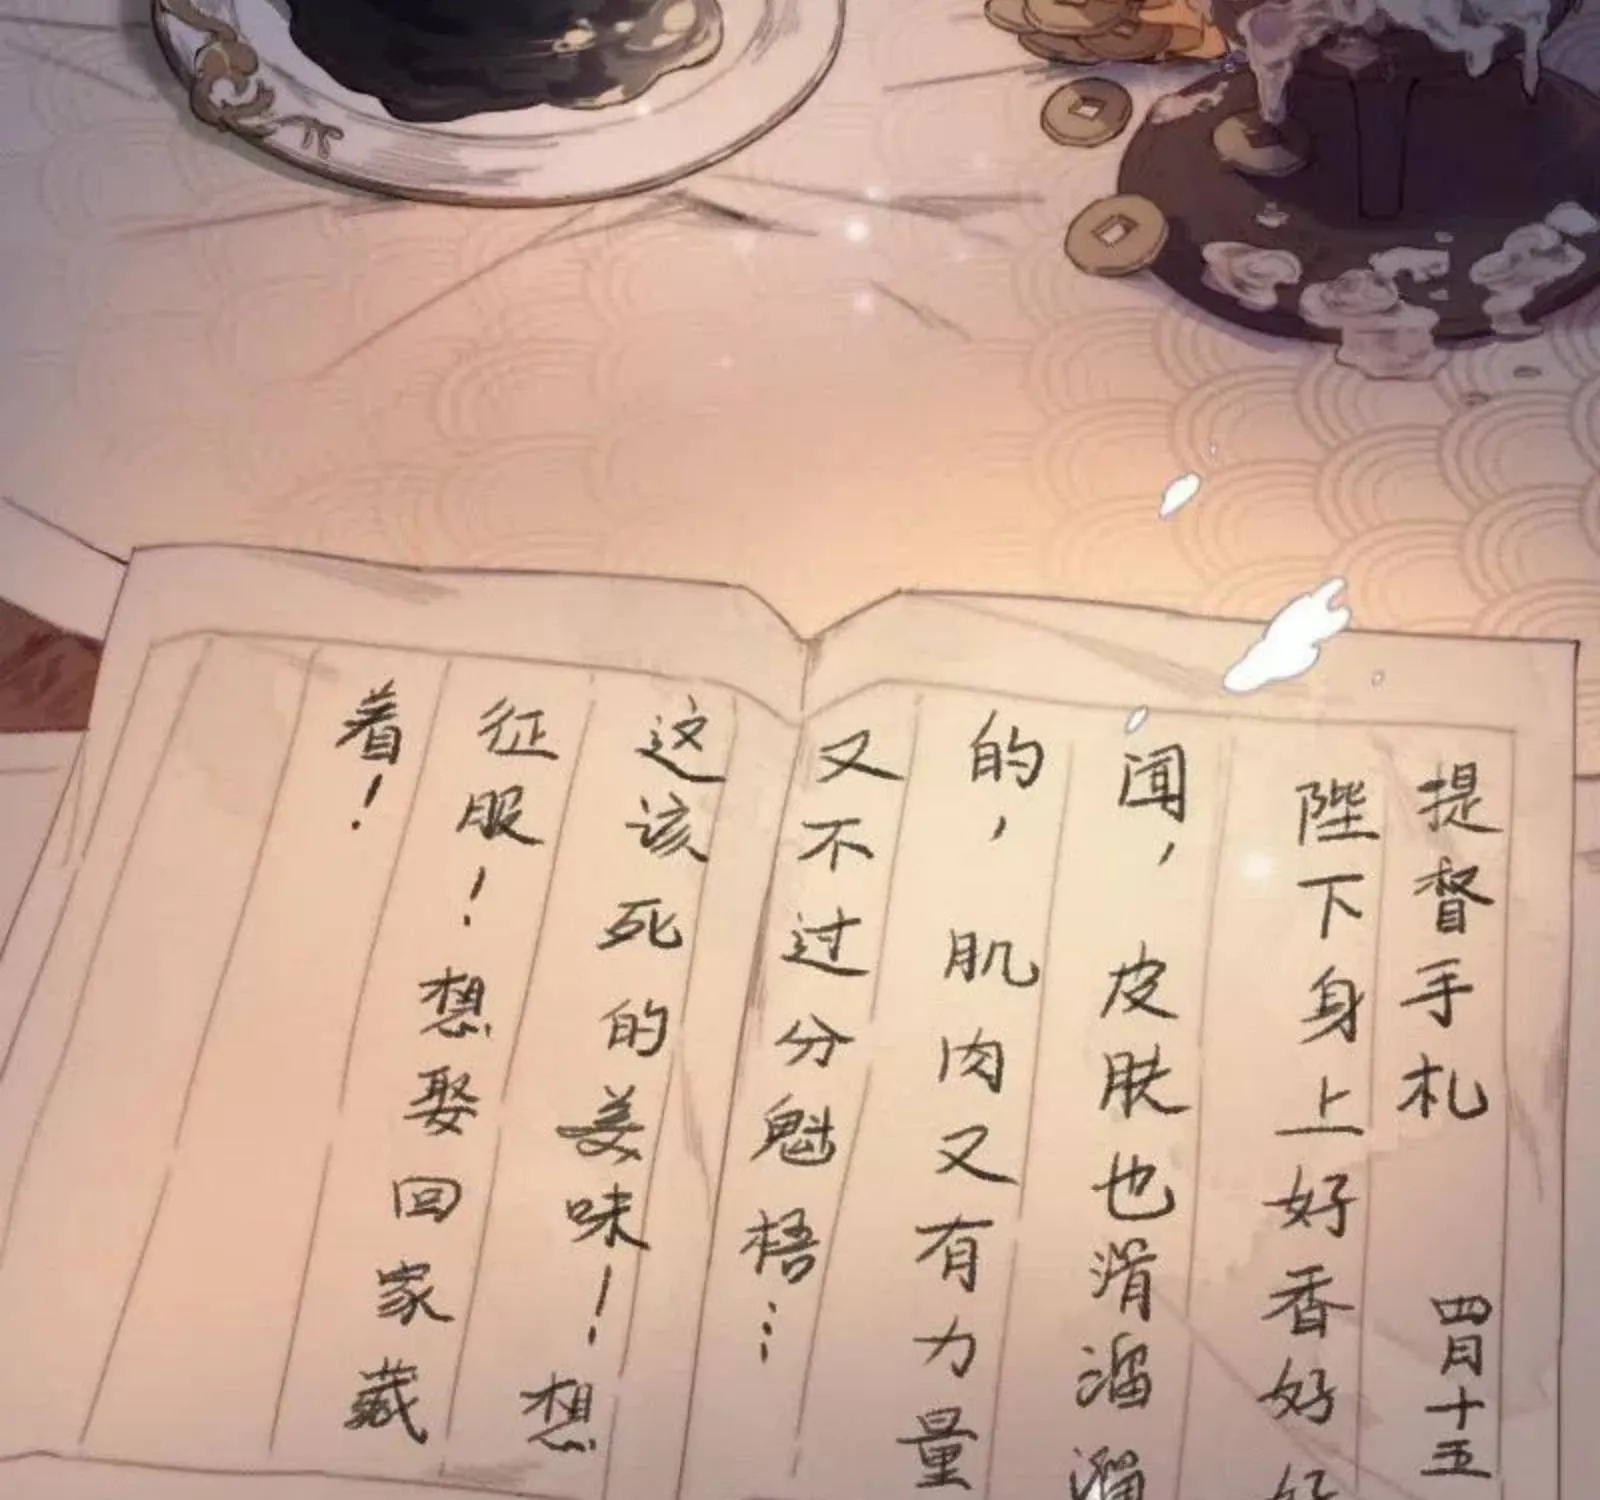 提督手札 四月十五
陛下身上好香好好
闻，皮肤也滑溜溜
的，肌肉又有力量
又不过分魁梧…
这该死的美味！想
征服！想娶回家藏
着！